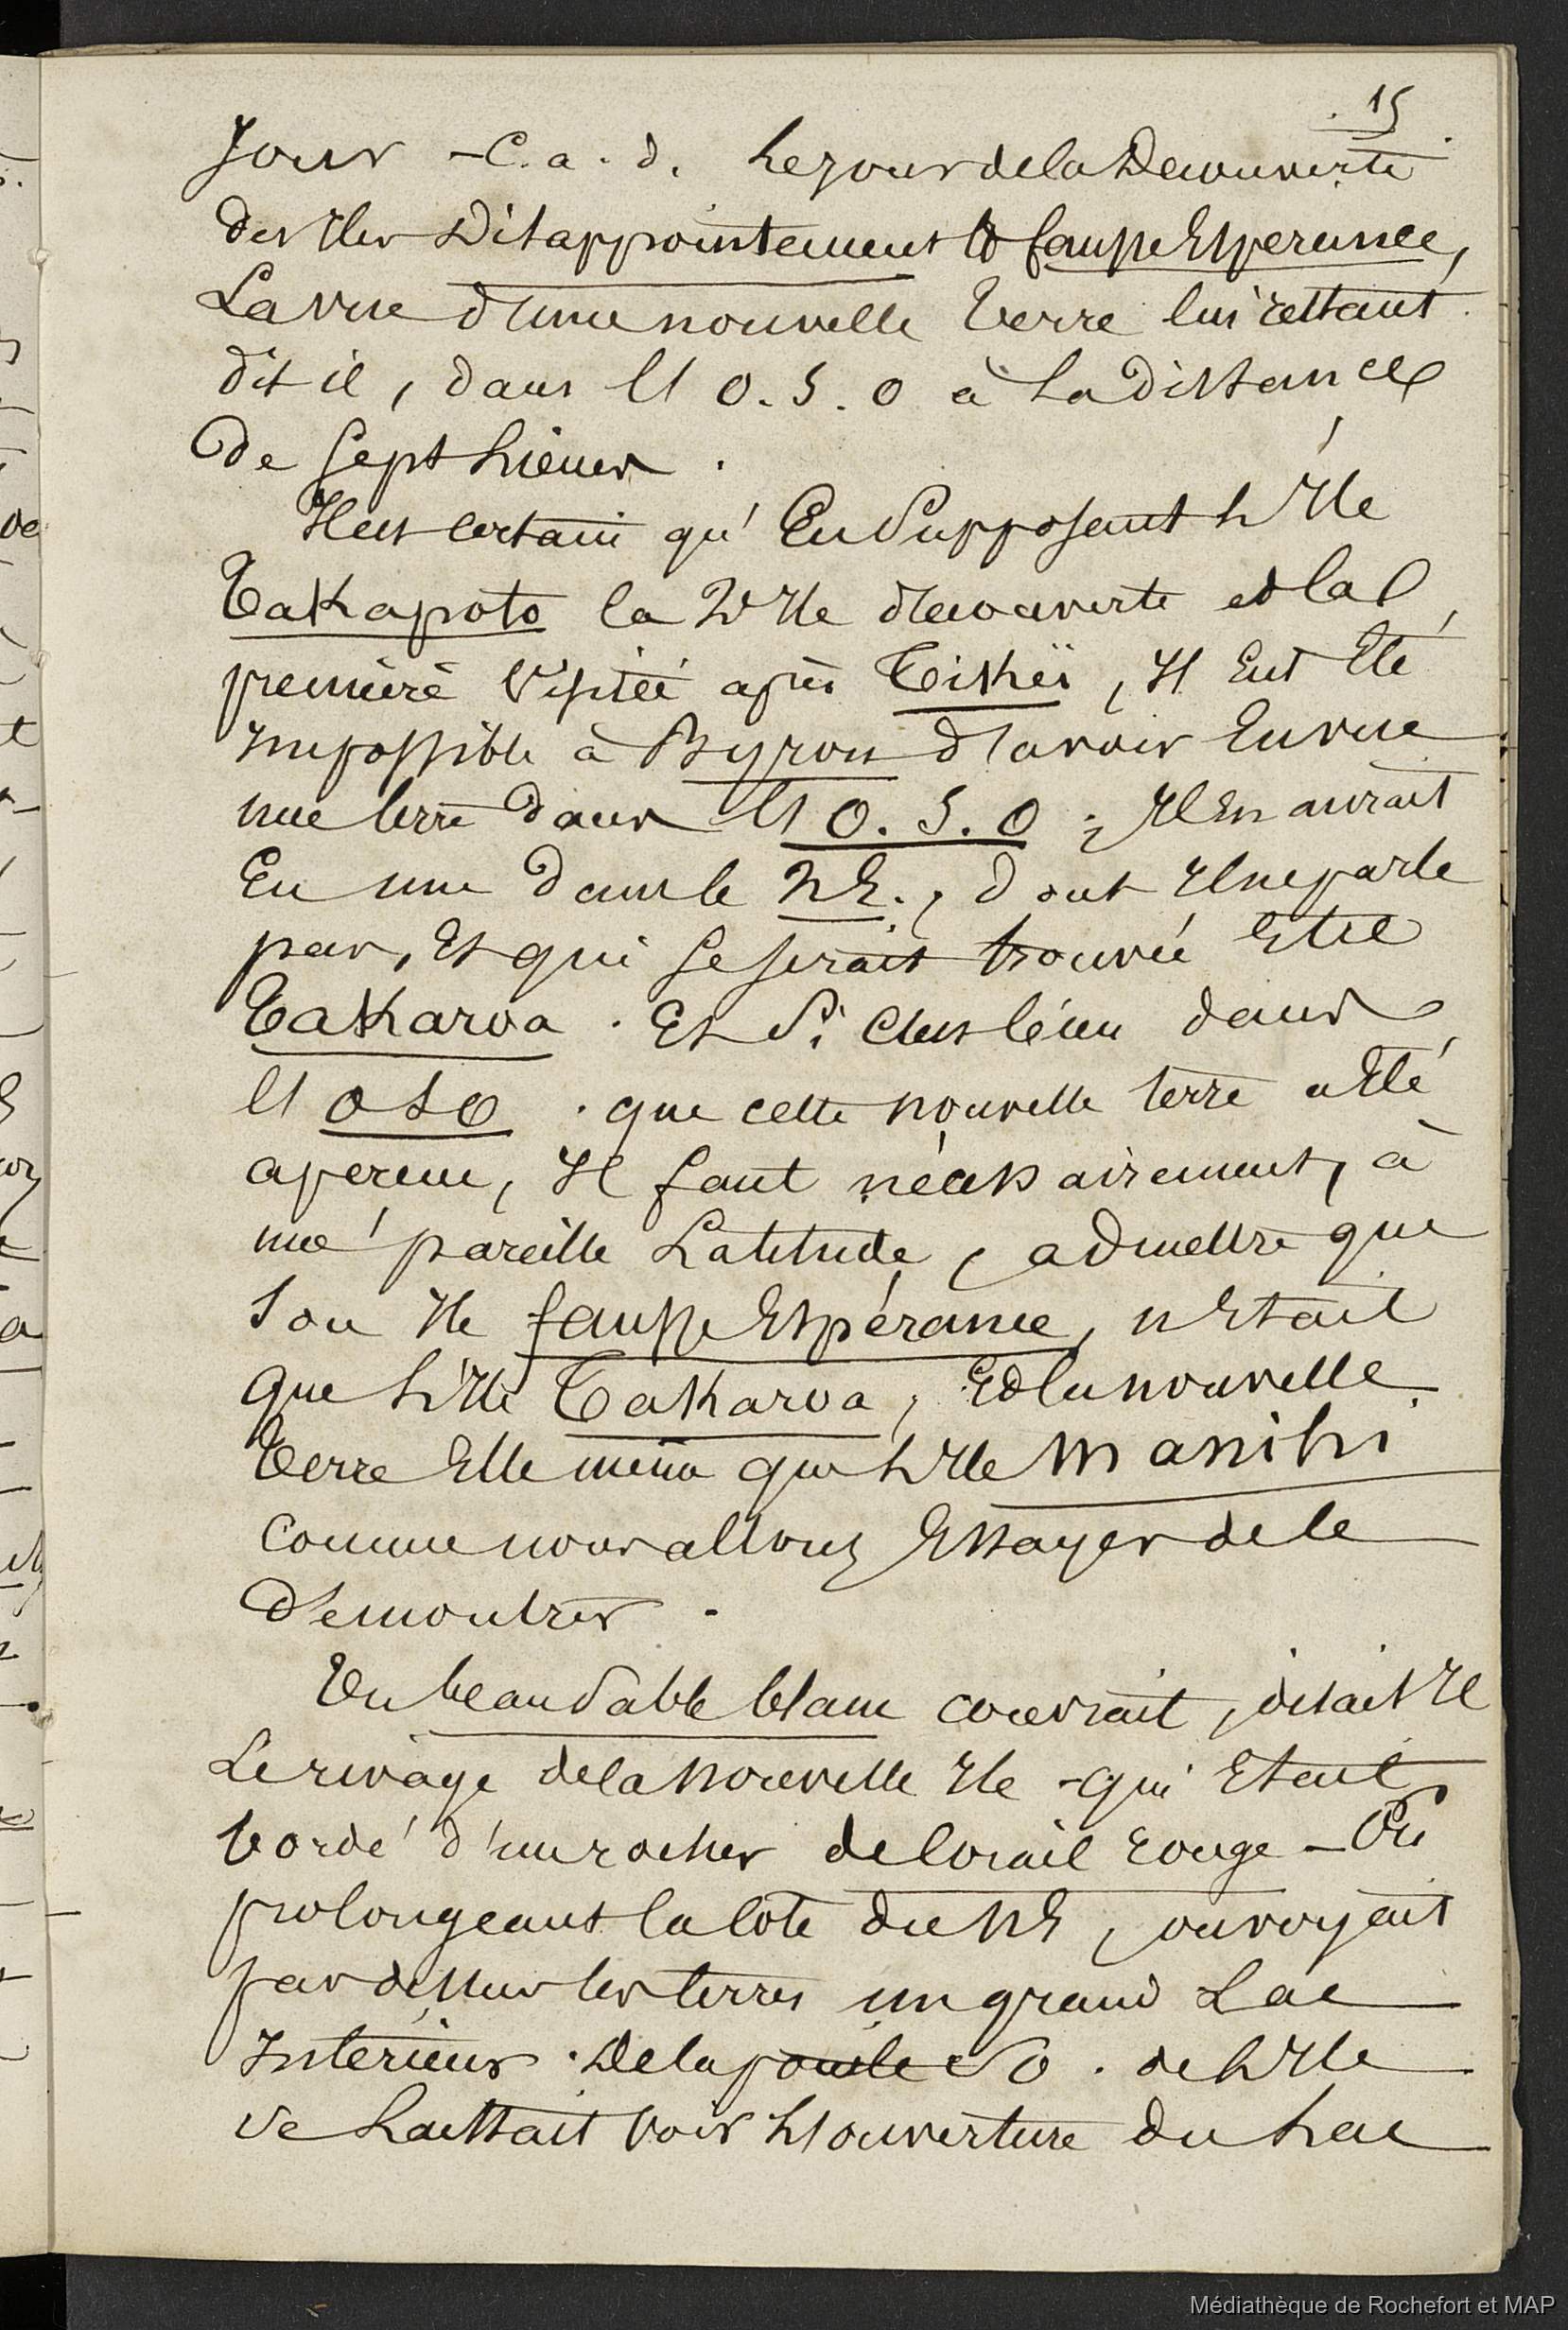 15
Jour - C. a. d. le jour de la Découverte
des Iles Disappointement et fausse Esperance,
La vue d'une nouvelle Terre lui restant
dit il, dans l'O.S.O à la distance
de sept lieues.
Il est certain qu'en supposant l'Ile
Takapoto la 2e Ile découverte et la
première visitée après Tikeï, Il eut Eté
Impossible à Byron d'avoir En vue
une terre dans l'O.S.O ; Il En aurait
Eu une dans le NE., dont Il ne parle
pas, Et qui se serait trouvée Etre
Takaroa. Et si c'est bien dans
l'OSO. que cette nouvelle terre a Eté
aperçue, Il faut nécessairement, à
une pareille Latitude, admettre que
son Ile fausse Espérance, n'Etait
que l'Ile Takaroa, Et la nouvelle
Terre Elle même que l'Ile Manihi
comme nous allons Essayer de le
démontrer.
Un beau sable blanc couvrait, disait Il
Le rivage de la nouvelle Ile - qui Etait
bordé d'un rocher de Corail rouge - En
prolongeant la Côte du NE, on voyait
par dessus les terres un grand Lac
Intérieur. De la pointe SO. de l'Ile
se laissait voir l'ouverture du Lac
Médiathèque de Rochefort et MAP